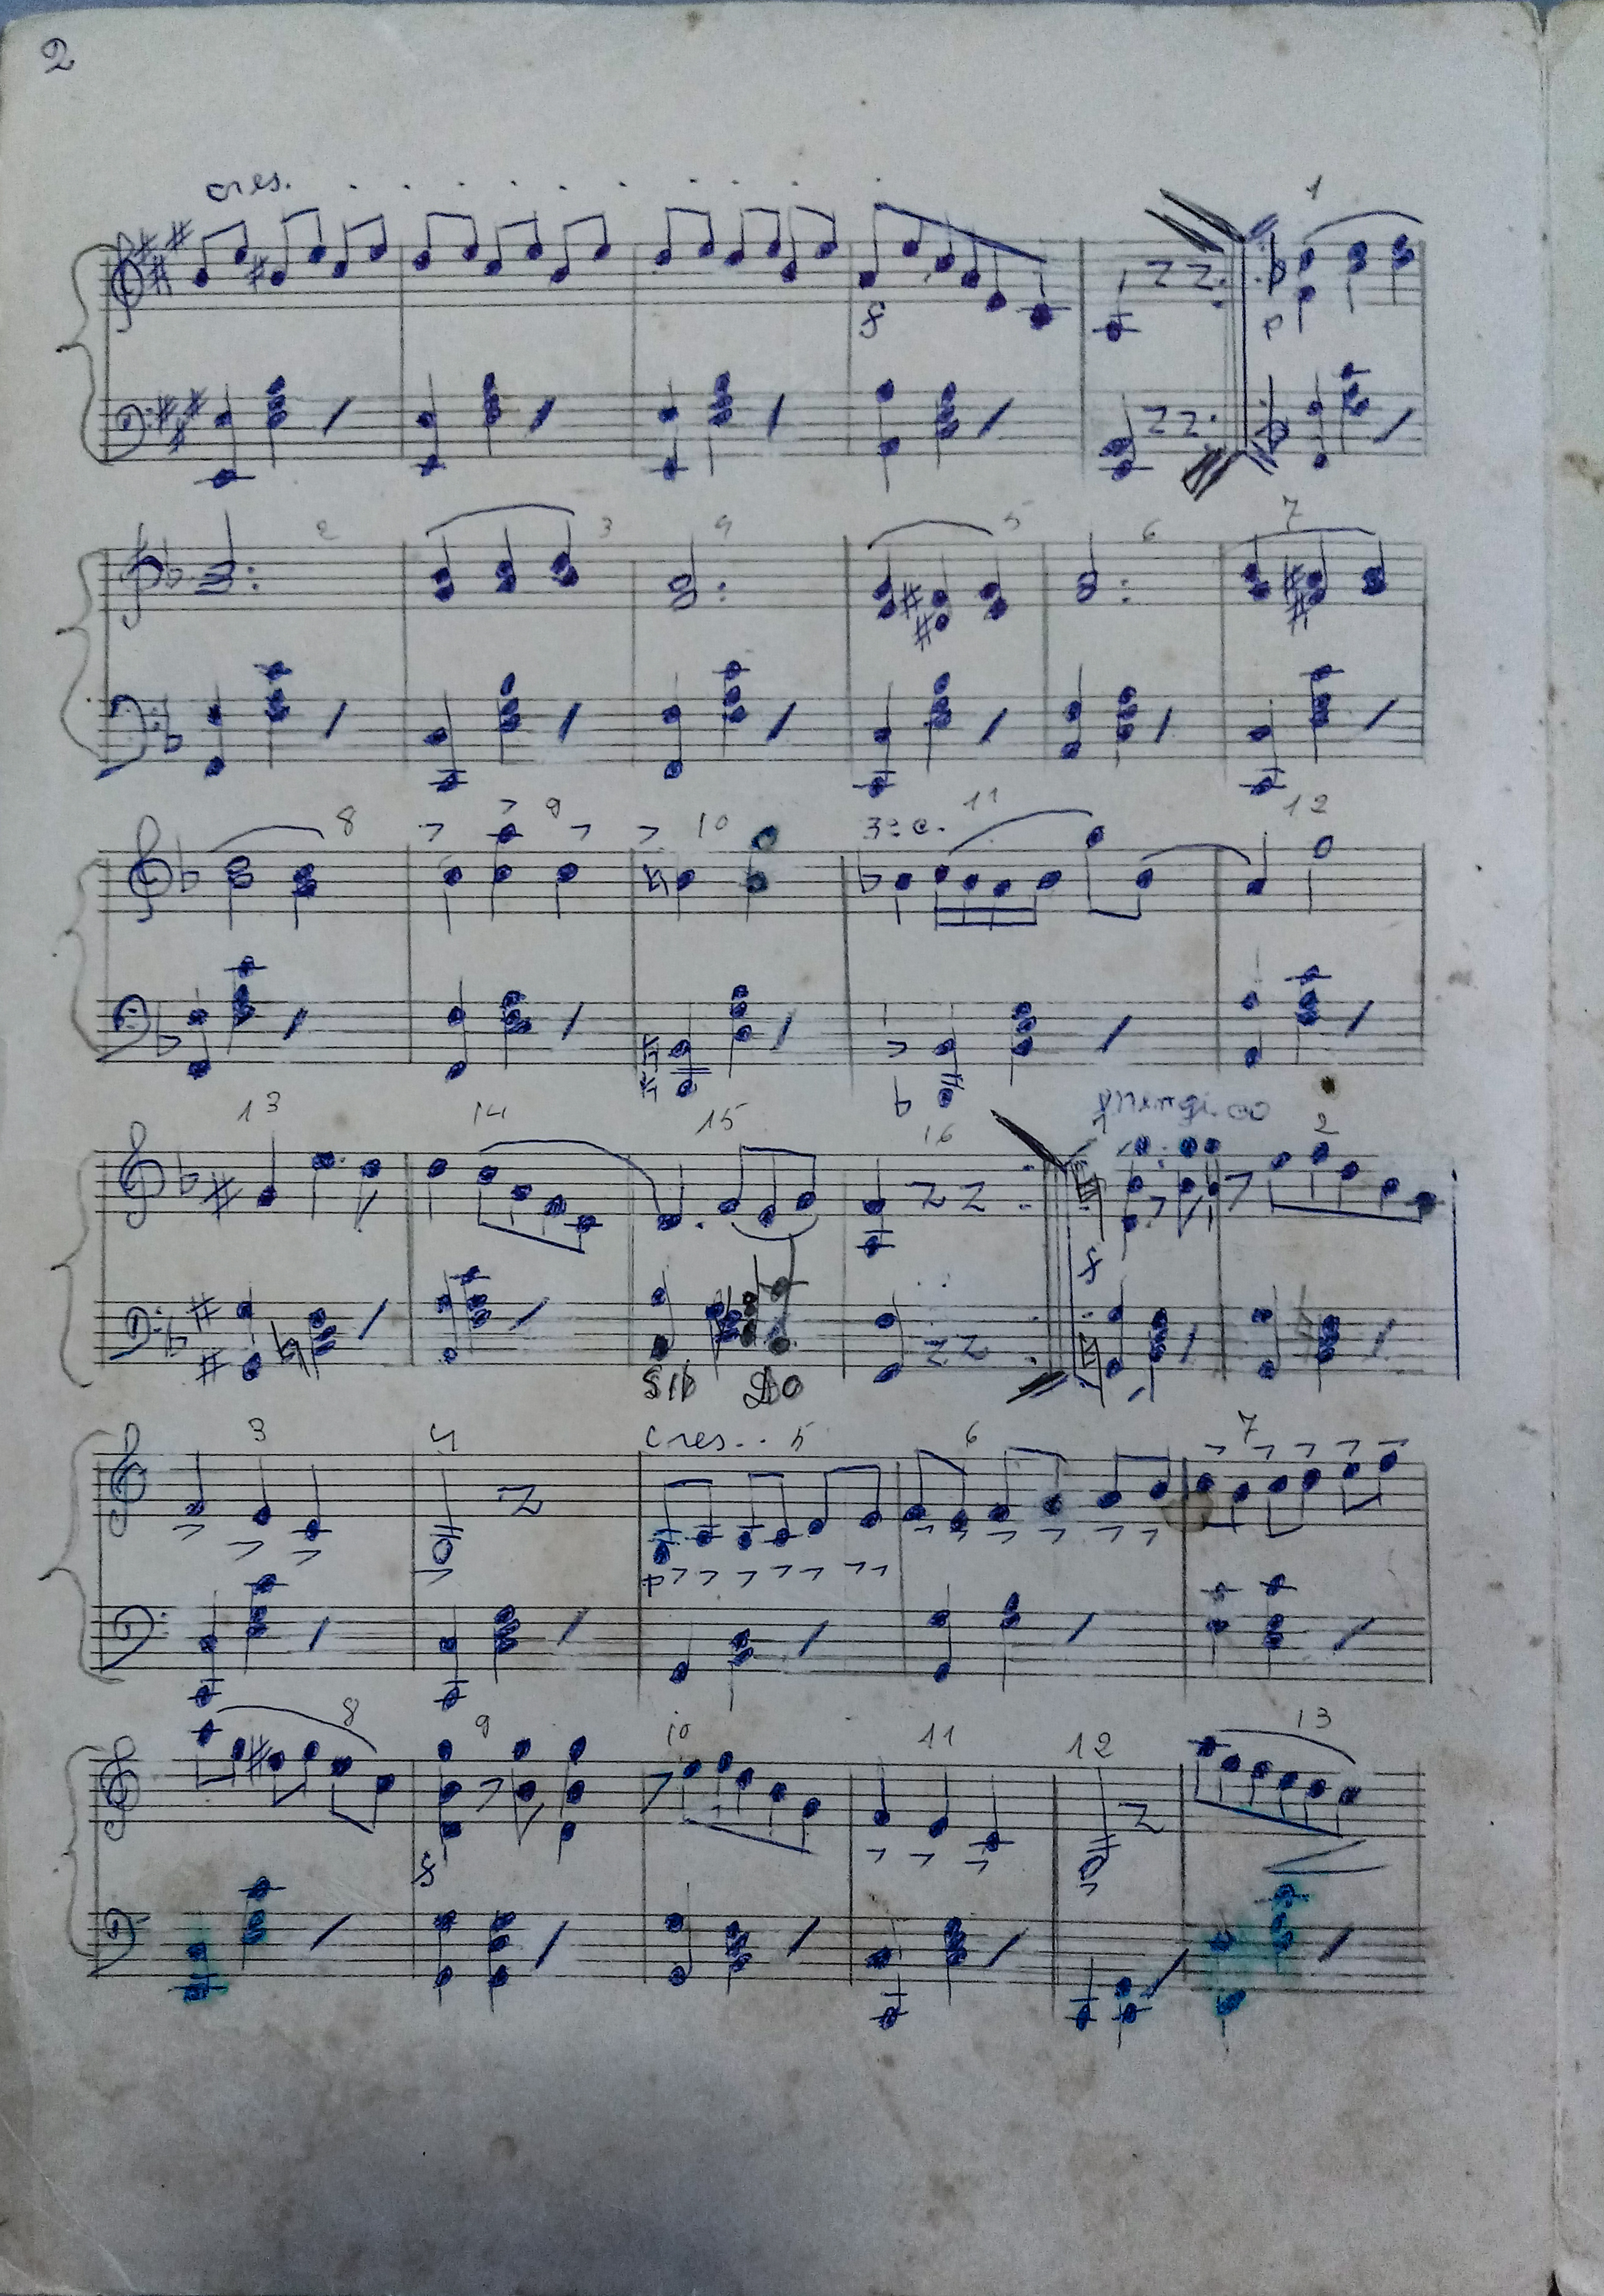 2
cres. . . . . . . . . . . 1
f p
2 3 4 5 6 7
8 9 10 3ª c. 11 12
13 14 15 16 2
f
SIb DO
3 4 cres... 5 6 7
p
8 9 10 11 12 13
f